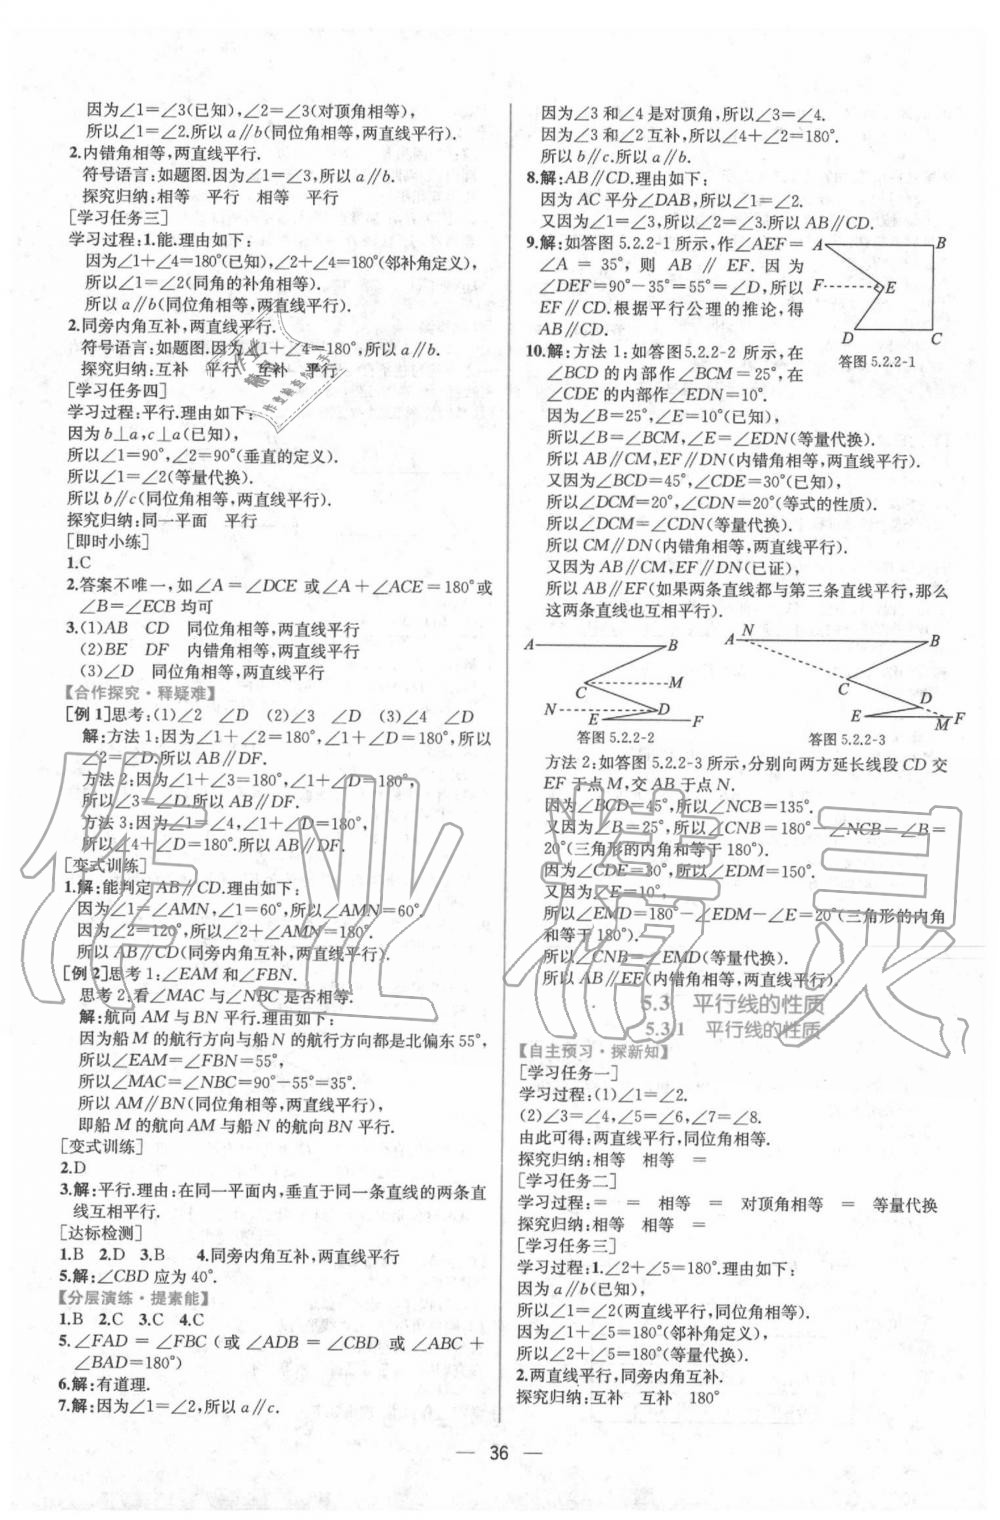 因为∠1=∠3(已知),∠2=∠3(对顶角相等),
所以∠1=∠2.所以a∥b(同位角相等,两直线平行).
2.内错角相等,两直线平行.
符号语言:如题图.因为∠1=∠3,所以a∥b.
探究归纳:相等 平行 相等 平行
[学习任务三]
学习过程:1.能.理由如下:
因为∠1+∠4=180°(已知),∠2+∠4=180°(邻补角定义),
所以∠1=∠2(同角的补角相等).
所以a∥b(同位角相等,两直线平行).
2.同旁内角互补,两直线平行.
符号语言:如题图.因为∠1+∠4=180°,所以a∥b.
探究归纳:互补 平行 互补 平行
[学习任务四]
学习过程:平行.理由如下:
因为b⊥a,c⊥a(已知),
所以∠1=90°,∠2=90°(垂直的定义).
所以∠1=∠2(等量代换).
所以b∥c(同位角相等,两直线平行).
探究归纳:同一平面 平行
[即时小练]
1.C
2.答案不唯一,如∠A=∠DCE或∠A+∠ACE=180°或
∠B=∠ECB均可
3.(1)AB CD 同位角相等,两直线平行
(2)BE DF 内错角相等,两直线平行
(3)∠D 同位角相等,两直线平行
【合作探究·释疑难】
[例1]思考:(1)∠2 ∠D (2)∠3 ∠D (3)∠4 ∠D
解:方法1:因为∠1+∠2=180°,∠1+∠D=180°,所以
∠2=∠D.所以AB∥DF.
方法2:因为∠1+∠3=180°,∠1+∠D=180°,
所以∠3=∠D.所以AB∥DF.
方法3:因为∠1=∠4,∠1+∠D=180°,
所以∠4+∠D=180°.所以AB∥DF.
[变式训练]
1.解:能判定AB∥CD.理由如下:
因为∠1=∠AMN,∠1=60°,所以∠AMN=60°.
因为∠2=120°,所以∠2+∠AMN=180°.
所以AB∥CD(同旁内角互补,两直线平行).
[例2]思考1:∠EAM和∠FBN.
思考2:看∠MAC与∠NBC是否相等.
解:航向AM与BN平行.理由如下:
因为船M的航行方向与船N的航行方向都是北偏东55°,
所以∠EAM=∠FBN=55°,
所以∠MAC=∠NBC=90°-55°=35°.
所以AM∥BN(同位角相等,两直线平行),
即船M的航向AM与船N的航向BN平行.
[变式训练]
2.D
3.解:平行.理由:在同一平面内,垂直于同一条直线的两条直
线互相平行.
[达标检测]
1.B 2.D 3.B 4.同旁内角互补,两直线平行
5.解:∠CBD应为40°.
【分层演练·提素能】
1.B 2.C 3.C 4.C
5.∠FAD=∠FBC(或∠ADB=∠CBD或∠ABC+
∠BAD=180°)
6.解:有道理.
7.解:因为∠1=∠2,所以a∥c.
因为∠3和∠4是对顶角,所以∠3=∠4.
因为∠3和∠2互补,所以∠4+∠2=180°.
所以b∥c.所以a∥b.
8.解:AB∥CD.理由如下:
因为AC平分∠DAB,所以∠1=∠2.
又因为∠1=∠3,所以∠2=∠3.所以AB∥CD.
9.解:如答图5.2.2-1所示,作∠AEF=
∠A=35°,则AB∥EF.因为
∠DEF=90°-35°=55°=∠D,所以
EF∥CD.根据平行公理的推论,得
AB∥CD.
A B
F E
D C
答图5.2.2-1
10.解:方法1:如答图5.2.2-2所示,在
∠BCD的内部作∠BCM=25°,在
∠CDE的内部作∠EDN=10°.
因为∠B=25°,∠E=10°(已知),
所以∠B=∠BCM,∠E=∠EDN(等量代换).
所以AB∥CM,EF∥DN(内错角相等,两直线平行).
又因为∠BCD=45°,∠CDE=30°(已知),
所以∠DCM=20°,∠CDN=20°(等式的性质).
所以∠DCM=∠CDN(等量代换).
所以CM∥DN(内错角相等,两直线平行).
又因为AB∥CM,EF∥DN(已证),
所以AB∥EF(如果两条直线都与第三条直线平行,那么
这两条直线也互相平行).
A B
C M
N D
E F
答图5.2.2-2
A N B
C
D
E M F
答图5.2.2-3
方法2:如答图5.2.2-3所示,分别向两方延长线段CD交
EF于点M,交AB于点N.
因为∠BCD=45°,所以∠NCB=135°.
又因为∠B=25°,所以∠CNB=180°-∠NCB-∠B=
20°(三角形的内角和等于180°).
因为∠CDE=30°,所以∠EDM=150°.
又因为∠E=10°,
所以∠EMD=180°-∠EDM-∠E=20°(三角形的内角
和等于180°).
所以∠CNB=∠EMD(等量代换).
所以AB∥EF(内错角相等,两直线平行).
5.3 平行线的性质
5.3.1 平行线的性质
【自主预习·探新知】
[学习任务一]
学习过程:(1)∠1=∠2.
(2)∠3=∠4,∠5=∠6,∠7=∠8.
由此可得:两直线平行,同位角相等.
探究归纳:相等 相等 =
[学习任务二]
学习过程:= = 相等 = 对顶角相等 = 等量代换
探究归纳:相等 相等 =
[学习任务三]
学习过程:1.∠2+∠5=180°.理由如下:
因为a∥b(已知),
所以∠1=∠2(两直线平行,同位角相等).
因为∠1+∠5=180°(邻补角定义),
所以∠2+∠5=180°(等量代换).
2.两直线平行,同旁内角互补.
探究归纳:互补 互补 180°
— 36 —
作业精灵